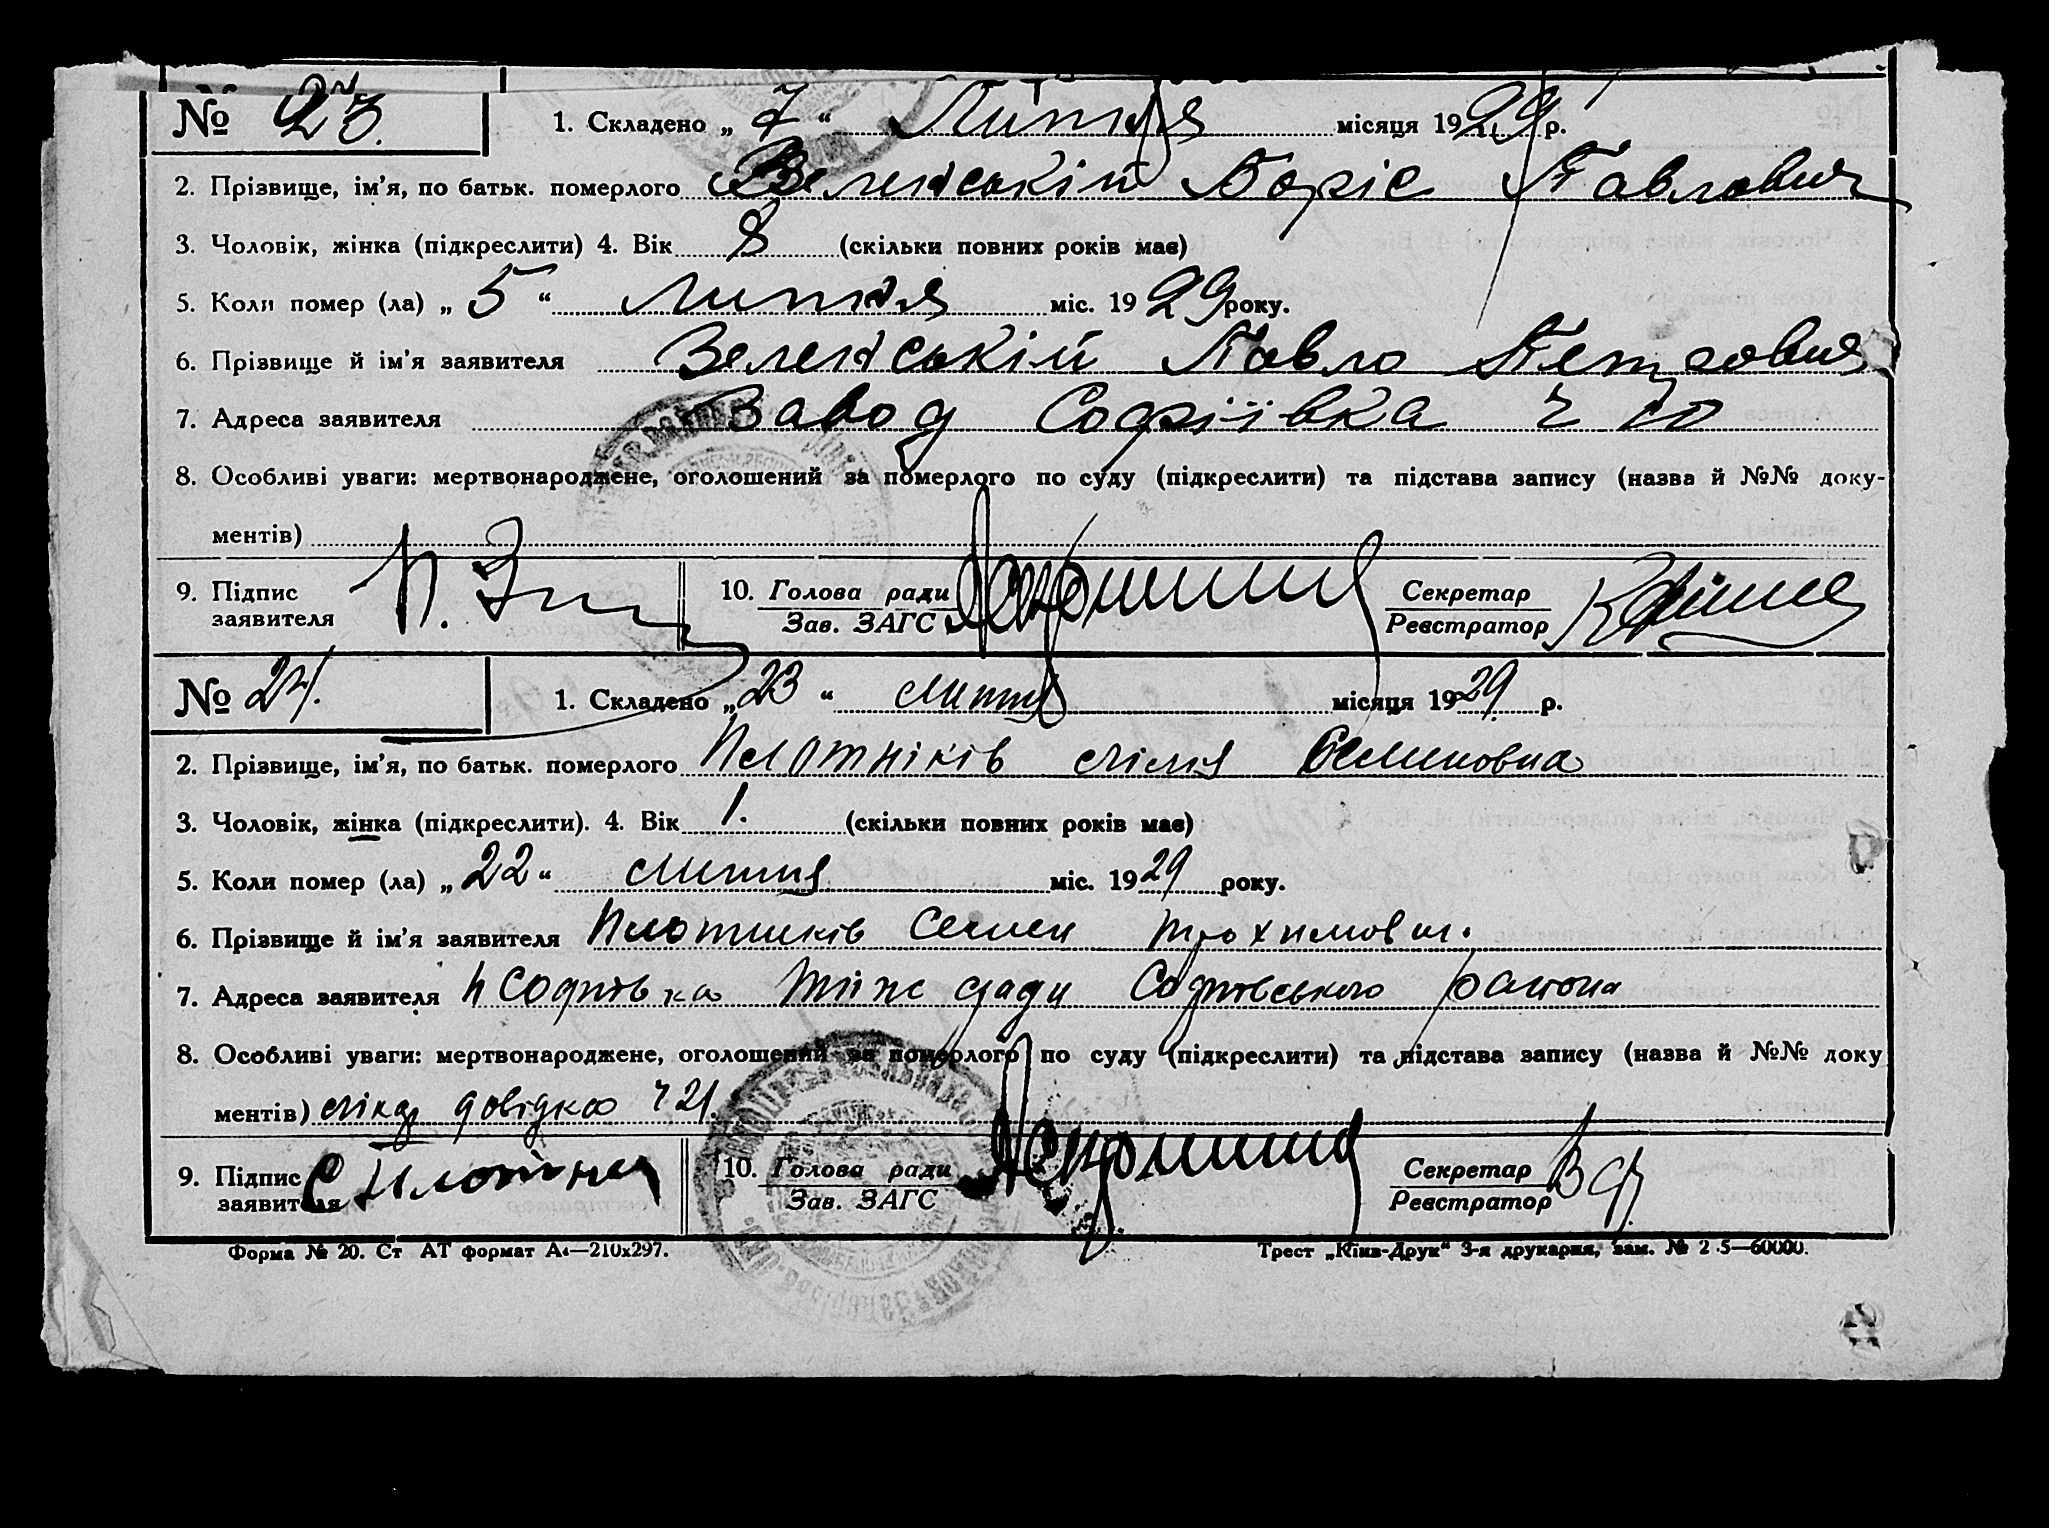 № 23. 1. Складено „ 7 “ Липня місяця 1929 р.
2. Прізвище, ім’я, по батьк. померлого Зеленській Боріс Павлович
3. Чоловік, жінка (підкреслити) 4. Вік 8 (скільки повних років має)
5. Коли помер (ла) „ 5 “ Липня міс. 1929 року.
6. Прізвище й ім’я заявителя Зеленській Павло Петрович
7. Адреса заявителя Завод Софіївка ч 10
8. Особливі уваги: мертвонароджене, оголошений за померлого по суду (підкреслити) та підстава запису (назва й №№ доку-
ментів)
9. Підпис заявителя П. 10. Голова ради Зав. ЗАГС Секретар Реєстратор
№ 24. 1. Складено „ 23 “ липня місяця 1929 р.
2. Прізвище, ім’я, по батьк. померлого Плотніків Лілія Семеновна
3. Чоловік, жінка (підкреслити). 4. Вік 1. (скільки повних років має)
5. Коли помер (ла) „ 22 “ липня міс. 1929 року.
6. Прізвище й ім’я заявителя Плотників Семен Трохимович.
7. Адреса заявителя Софіївка ради Софіївського району
8. Особливі уваги: мертвонароджене, оголошений за померлого по суду (підкреслити) та підстава запису (назва й №№ доку
ментів) лікар довідка ч 21.
9. Підпис заявителя С 10. Голова ради Зав. ЗАГС Секретар Реєстратор
Форма № 20. Ст АТ формат А4—210х297. Трест „Київ-Друк“ 3-я друкарня, зам. № 2 5—60000.